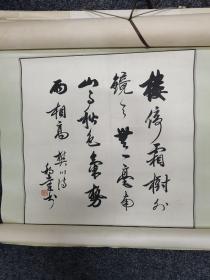 樓倚霜樹外
鏡天無一毫南
山与秋色氣勢
兩相高 樊川詩
书